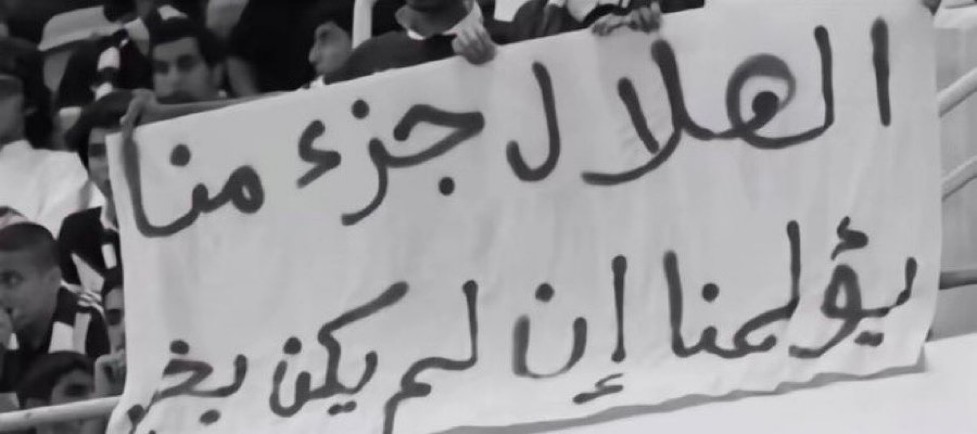 الهلال جزء منا
يؤلمنا إن لم يكن بخير